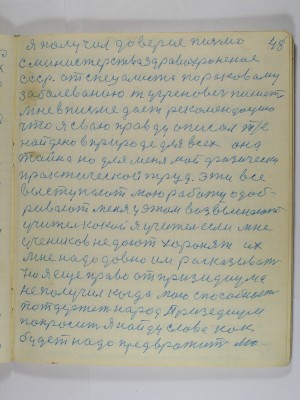 48
Я получил доверие письмо
с министерства здравохронение
СССР. от специалиста по раковому
заболеванию тугренович пишет
мне в письме дает рекомендацию
что я сваю правду описал т/е
найдено в природе для всех она
тайна но для меня мой физически
практический труд. Эти все
выступают мою работу одоб-
ривают меня у этом возвеличают
учител какой я учител если мне
учеников не дают хоронят их
мне надо давно им рассказывать
но я еще право от призидиума
не получил когда мою способность
потдержет народ Призедиум
попросит я найду слова как
будет надо предвражит мо-